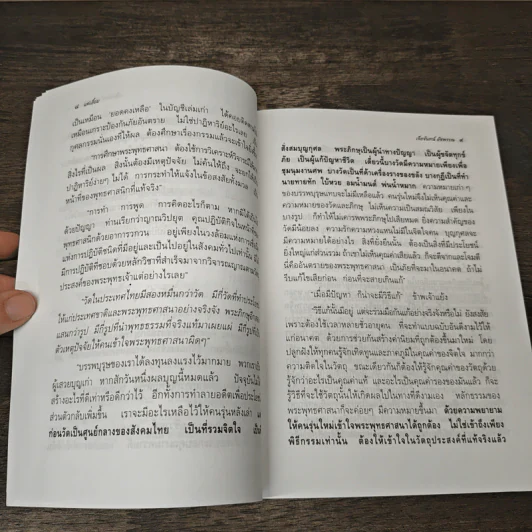 เป็นเหมือน 'ยอดคงเหลือ' ในบัญชีเล่มเก่า ได้คอยติดตามมา
เหมือนเกราะป้องกันภัยอันตราย ไม่ใช่ปาฏิหาริย์อะไรเลย
กุศลกรรมนั่นเองที่ให้ผล ต้องศึกษาเรื่องกรรมแล้วจะเข้าใจ
"การศึกษาพระพุทธศาสนา ต้องใช้การวิเคราะห์วิจารณ์
สิ่งไรที่เป็นผล สิ่งนั้นต้องมีเหตุปัจจัย ไม่ค้นให้ถึง จะ
ปาฏิหาริย์ง่ายๆ ไม่ได้ การกระทำให้แจ้งในข้อสงสัยทั้งมวล
หน้าที่ของพุทธศาสนิกที่แท้จริง"
"การทำ การพูด การคิดอะไรก็ตาม หากมิได้
ด้วยปัญญา ท่านเรียกว่าญาณวิปยุต คุณปฏิบัติกิจในหน้า
พุทธศาสนิกด้วยอาการวงกวน อยู่เพียงในวงล้อมแห่งการ
แห่งการปฏิบัติชนิดที่มีอยู่และเป็นไปอยู่ในสังคมทั่วไปเท่านั้น
มีการปฏิบัติที่ชอบด้วยหลักวิชาที่สำเร็จมาจากวิจารณญาณตาม
ประสงค์ของพระพุทธเจ้าแต่อย่างไรเลย"
"วัดในประเทศไทยมีสองหมื่นกว่าวัด มีกี่วัดที่ทำประโยชน์
ให้แก่ประเทศชาติและพระพุทธศาสนาอย่างจริงจัง พระภิกษุ
แสนกว่ารูป มีกี่รูปที่นำพุทธธรรมที่จริงแท้มาเผยแผ่ มีกี่รูปที่
ตัวเหตุปัจจัยให้คนเข้าใจพระพุทธศาสนาผิดๆ"
"บรรพบุรุษของเราได้ลงทุนลงแรงไว้มากมาย พวกเรา
ผู้เสวยบุญเก่า หากสักวันหนึ่งผลบุญนี้หมดแล้ว ปัจจุบัน
สร้างอะไรที่ดีเท่าหรือดีกว่าไว้ อีกทั้งการทำลายอดีตเพื่อประโยชน์
ส่วนตัวกลับเพิ่มขึ้น เราจะมีอะไรเหลือไว้ให้คนรุ่นหลังเล่า
ก่อนวัดเป็นศูนย์กลางของสังคมไทย เป็นที่รวมจิตใจ
สั่งสมบุญกุศล พระภิกษุเป็นผู้นำทางปัญญา เป็นผู้ขจัดทุกข์
ภัย เป็นผู้แก้ปัญหาชีวิต เดี๋ยวนี้บางวัดมีความหมายเพียงเพื่อ
ชุมนุมงานศพ บางวัดเป็นที่ค้าเครื่องรางของขลัง บางกุฏิเป็นที่ทำ
นายทายทัก ใบ้หวย อมน้ำมนต์ พ่นน้ำหมาก ความหมายเก่าๆ
ของบรรพบุรุษแทบจะไม่มีเหลือ คนรุ่นใหม่จึงไม่เห็นคุณค่าและ
ความหมายของวัดและภิกษุ ไม่เห็นความเป็นสมณวิสัย เพียงใน
บางรูป ก็ทำให้ไม่เคารพพระภิกษุไปเสียหมด ยิ่งความสำคัญของ
วัดมีน้อยลง ความรักความหวงแหนไม่มีในจิตใจคน บุญกุศลจะ
มีความหมายได้อย่างไร สิ่งที่ยั่งยืนนั้น ต้องเป็นสิ่งที่มีประโยชน์
ยิ่งใหญ่แก่ส่วนร่วม ถ้าเขาไม่เห็นคุณค่าเสียแล้ว ก็จะดีแตกและโจมตี
นี่คืออันตรายของพระพุทธศาสนา เป็นภัยที่จะมาในอนาคต ถ้าไม่
รีบแก้ไขเสียก่อน ก่อนที่จะสายเกินแก้"
"เมื่อมีปัญหา ก็น่าจะมีวิธีแก้" ข้าพเจ้าแย้ง
"วิธีแก้นั้นมีอยู่ แต่จะร่วมมือกันแก้อย่างจริงจังหรือไม่ ยังสงสัย
เพราะต้องใช้เวลาหลายชั่วอายุคน ที่จะทำแบบฉบับอันดีงามไว้ให้
แก่อนาคต ด้วยการช่วยกันสร้างค่านิยมที่ถูกต้องขึ้นมาใหม่ โดย
ปลูกฝังให้ทุกคนรู้จักเทิดทูนและภาคภูมิในคุณค่าของจิตใจ มากกว่า
ความติดใจในวัตถุ ขณะเดียวกันก็ต้องให้รู้จักคุณค่าของวัตถุด้วย
รู้จักว่าอะไรเป็นคุณค่าแท้ และอะไรเป็นคุณค่าของของมันแล้ว ก็จะ
รู้วิธีที่จะใช้วัตถุนั้นให้เกิดผลไปในทางที่ดีงามเอง หลักธรรมของ
พระพุทธศาสนาก็จะค่อยๆ มีความหมายขึ้นมา ด้วยความพยายาม
ให้คนรุ่นใหม่เข้าใจพระพุทธศาสนาได้ถูกต้อง ไม่ใช่เข้าถึงเพียง
พิธีกรรมเท่านั้น ต้องให้เข้าใจในวัตถุประสงค์ที่แท้จริงแล้ว